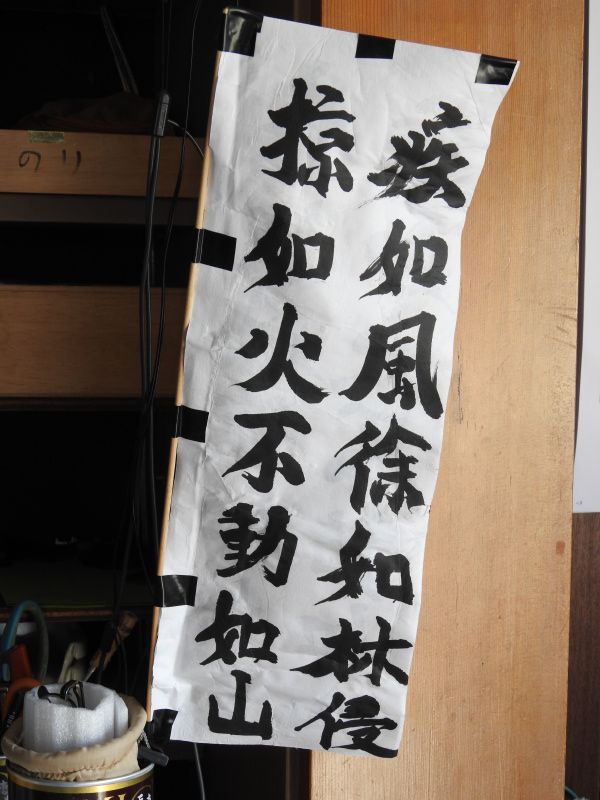 疾如風徐如林侵
掠如火不動如山
のり